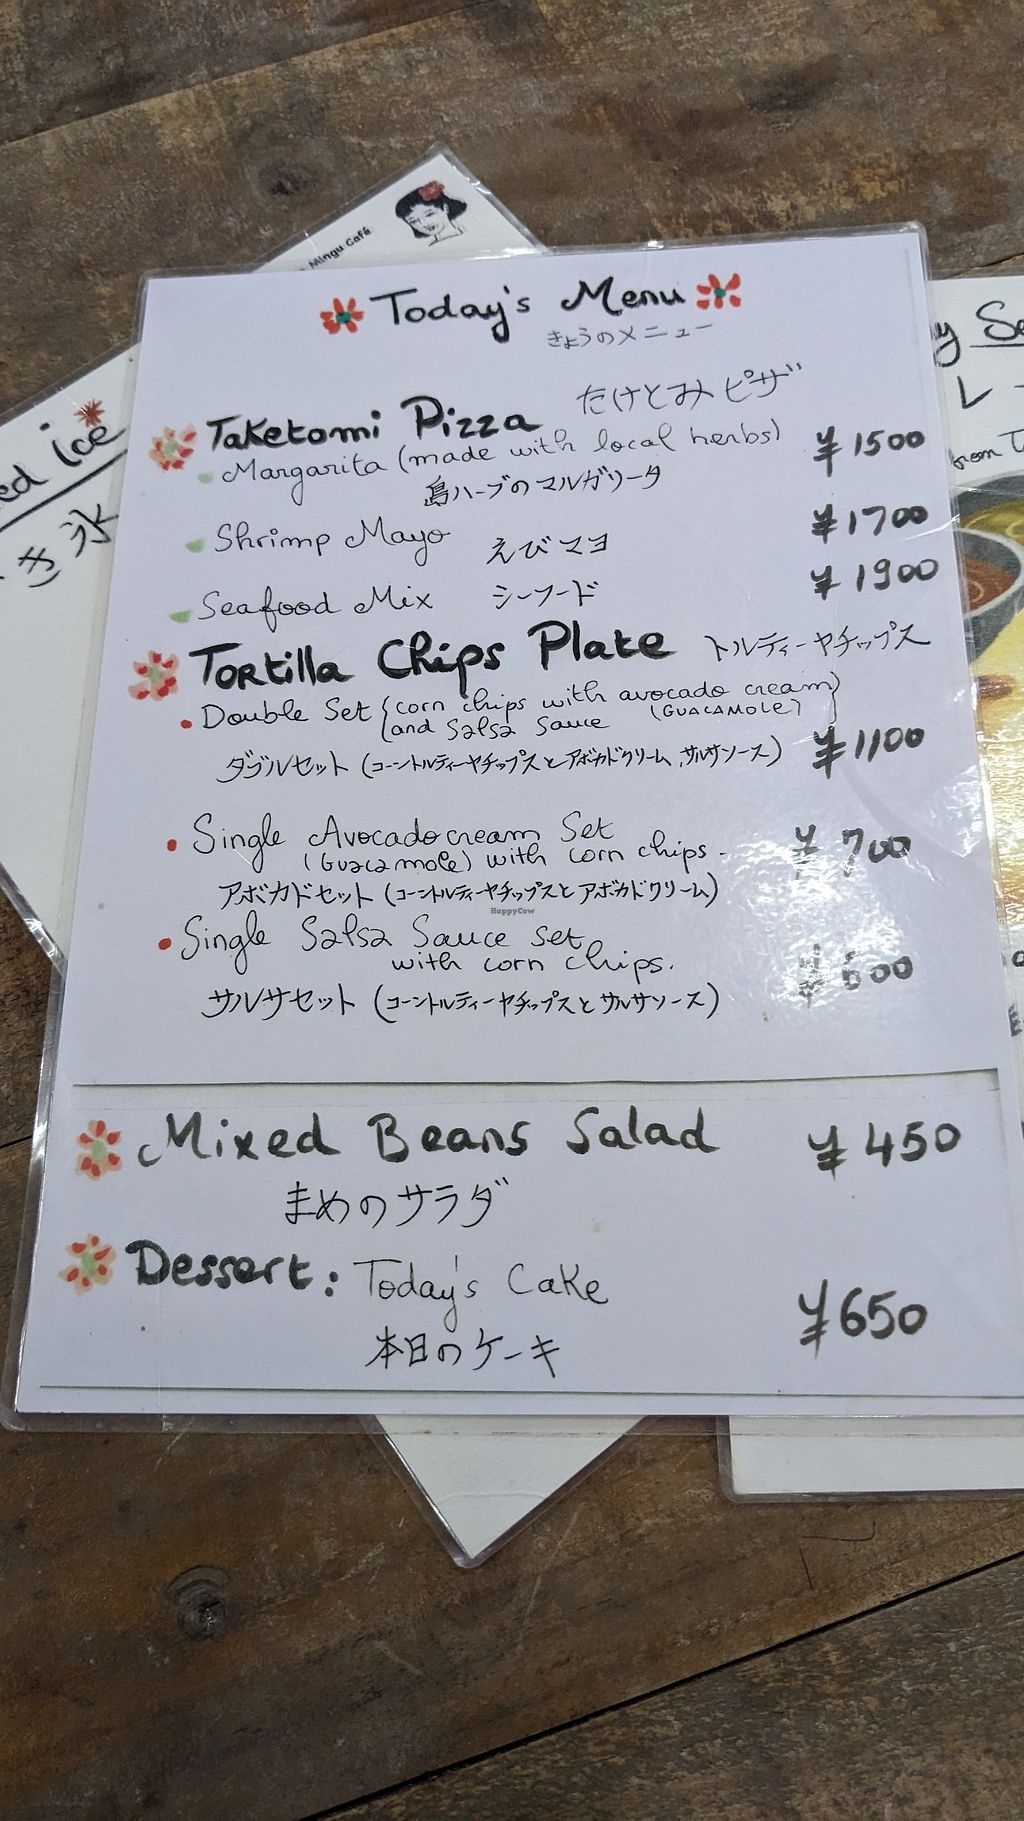 Mingu Café
Today's Menu
きょうのメニュー
Taketomi Pizza たけとみピザ
Margarita (made with local herbs) ¥1500
島ハーブのマルガリータ
Shrimp Mayo えびマヨ ¥1700
Seafood Mix シーフード ¥1900
Tortilla Chips Plate トルティーヤチップス
Double Set {corn chips with avocado cream}
and Salsa Sauce (GUACAMOLE)
ダブルセット (コーントルティーヤチップスとアボカドクリーム、サルサソース) ¥1100
Single Avocado cream Set
(Guacamole) with corn chips. ¥700
アボカドセット (コーントルティーヤチップスとアボカドクリーム)
HappyCow
Single Salsa Sauce set
with corn chips.
サルサセット (コーントルティーヤチップスとサルサソース)
Mixed Beans Salad ¥450
まめのサラダ
Dessert: Today's Cake ¥650
本日のケーキ
ice
き氷